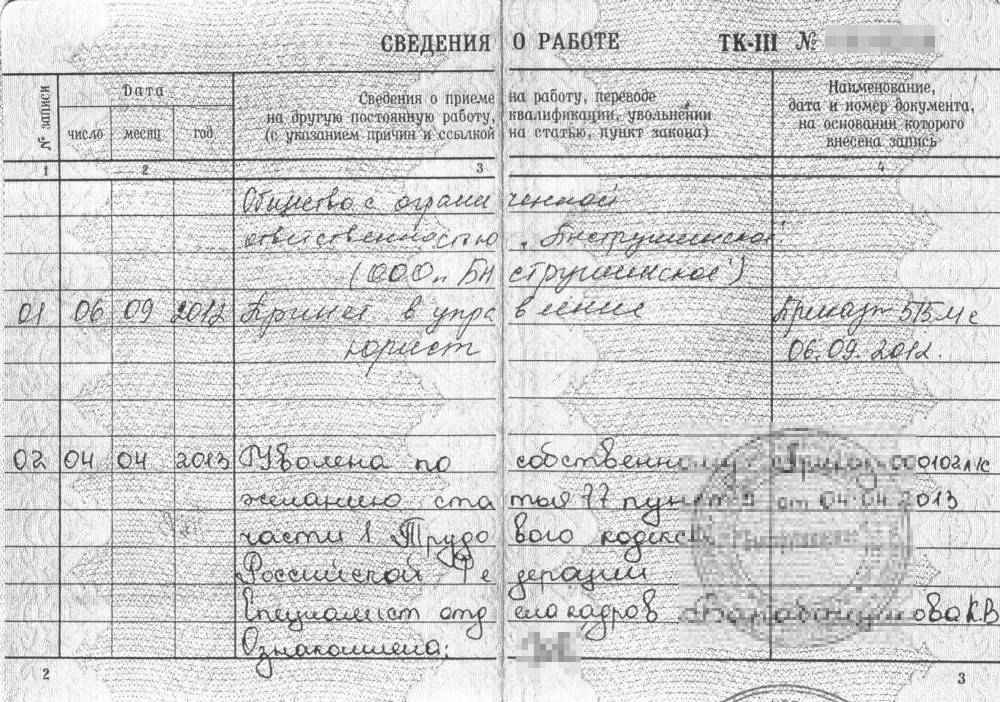 СВЕДЕНИЯ О РАБОТЕ ТК-III №
№ записи
Дата
Сведения о приеме на работу, переводе
на другую постоянную работу, квалификации, увольнении
(с указанием причин и ссылкой на статью, пункт закона)
Наименование,
дата и номер документа,
на основании которого
внесена запись
число месяц год
1 2 3 4
Общество с ограниченной
ответственностью
(ООО
01 06 09 2012 Принят в управление Приказ 515 лс
юрист 06.09.2012.
02 04 04 2013 Уволена по собственному Приказ 000102л/с
желанию статья 77 пункт 3 от 04.04 2013
части 1 Трудового кодекса
Российской Федерации
Специалист отдела кадров К.В
Ознакомлена:
2 3